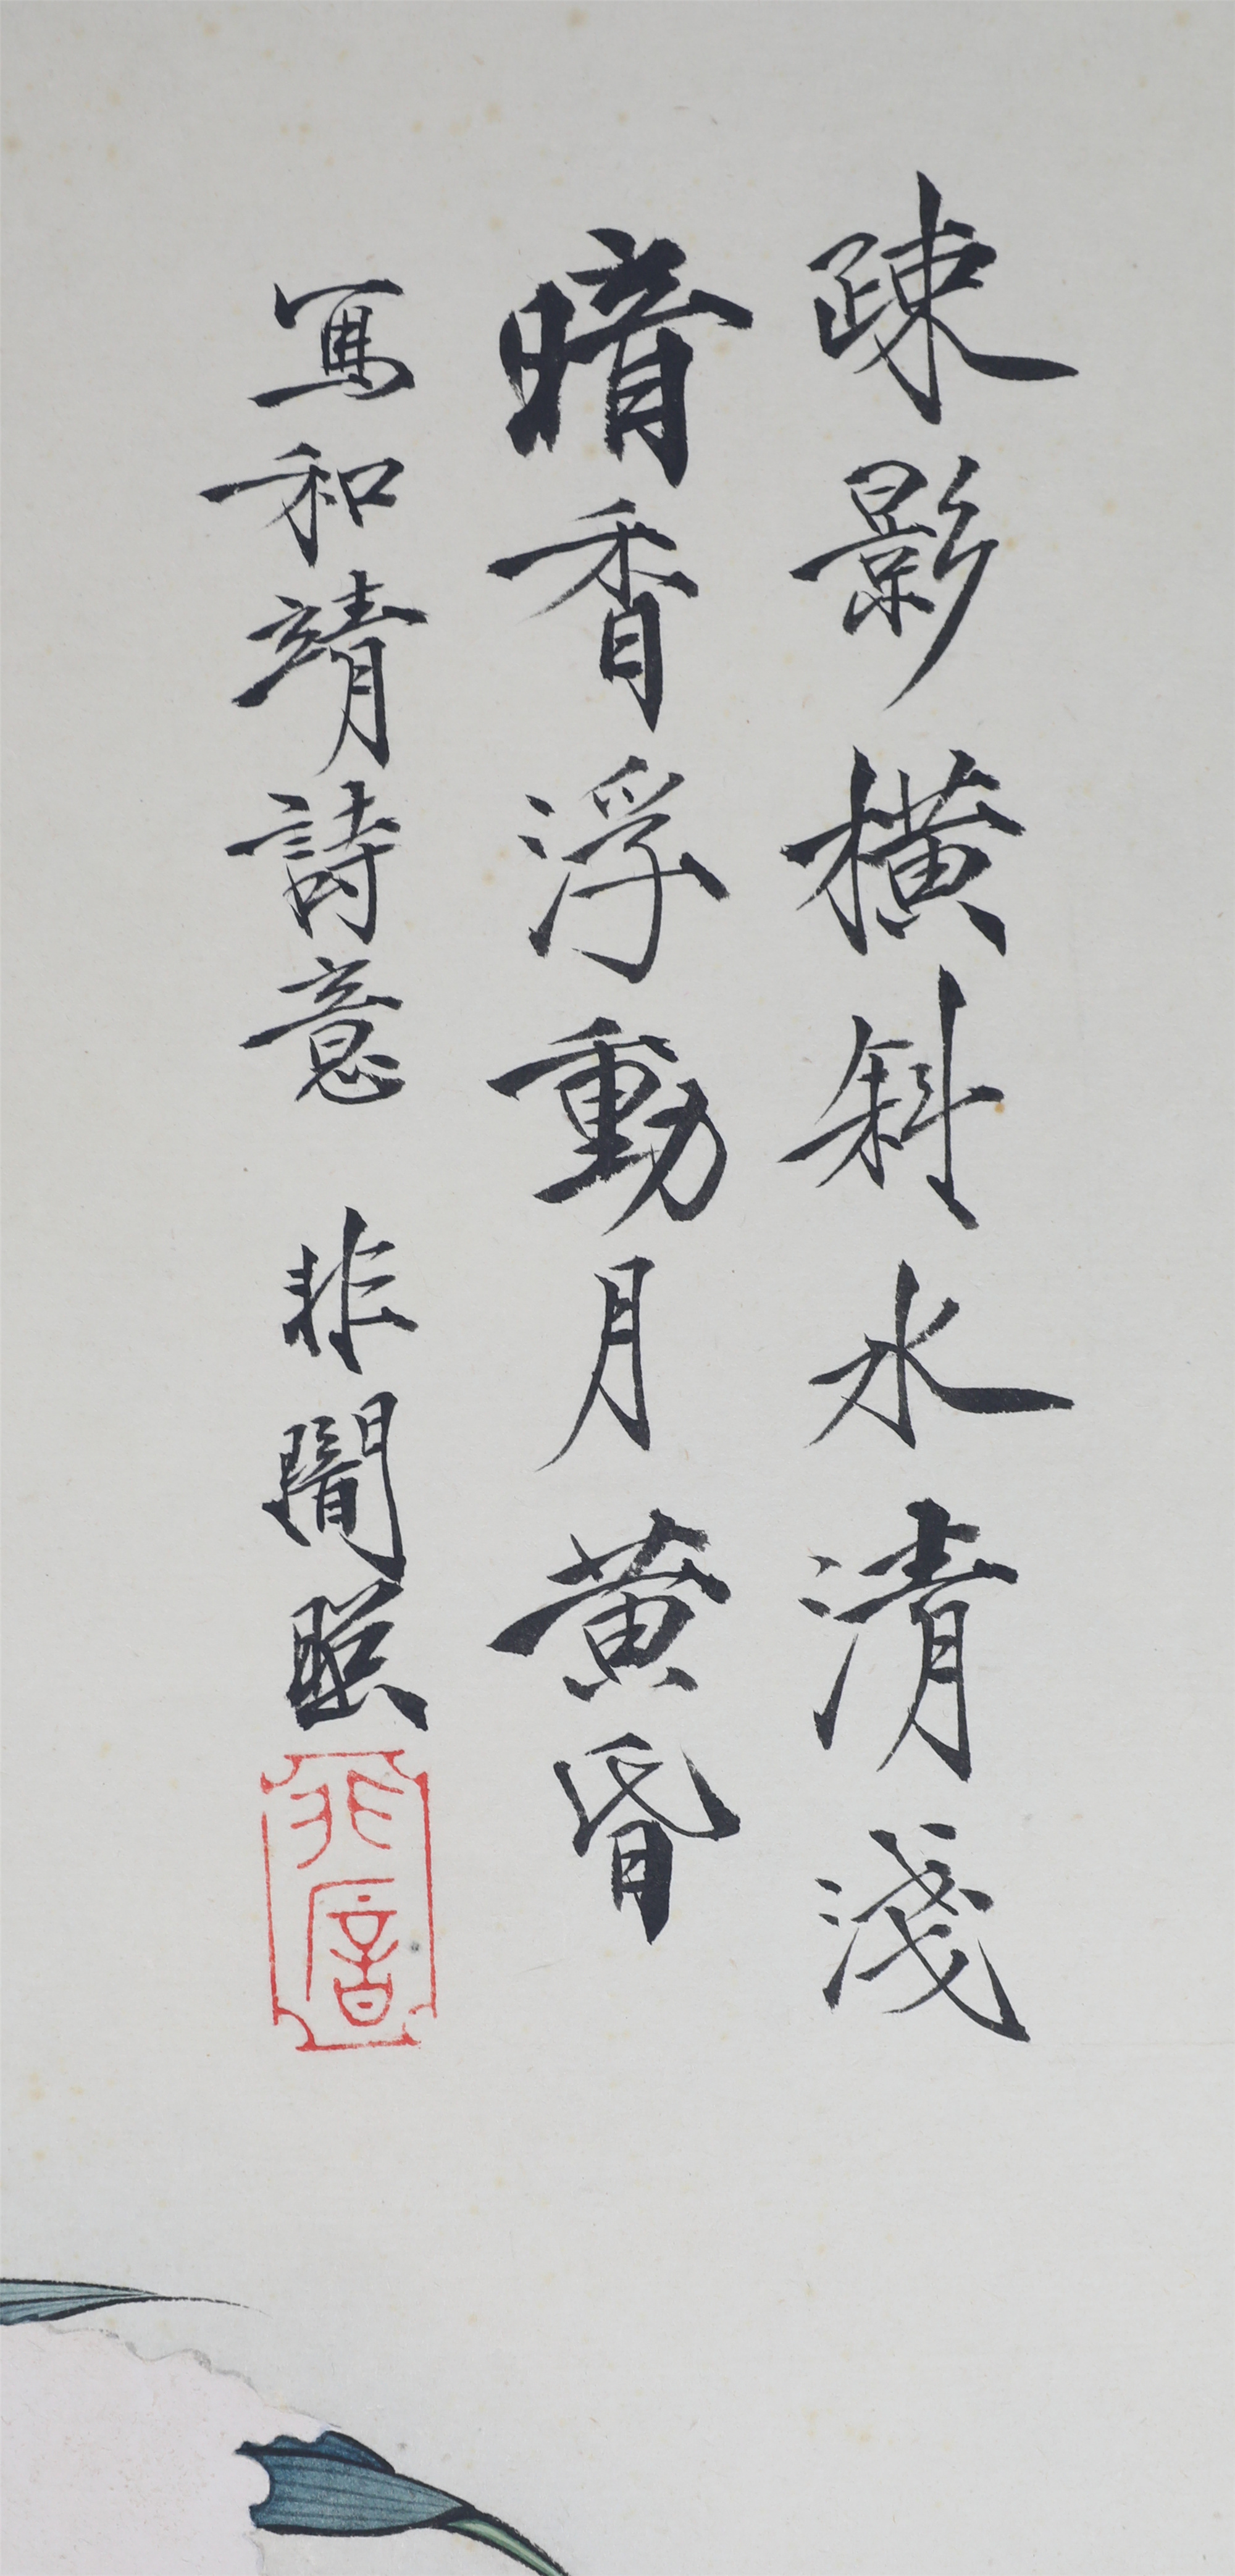 疎影橫斜水清淺
暗香浮動月黄昏
寫和靖詩意 非闇照
非闇